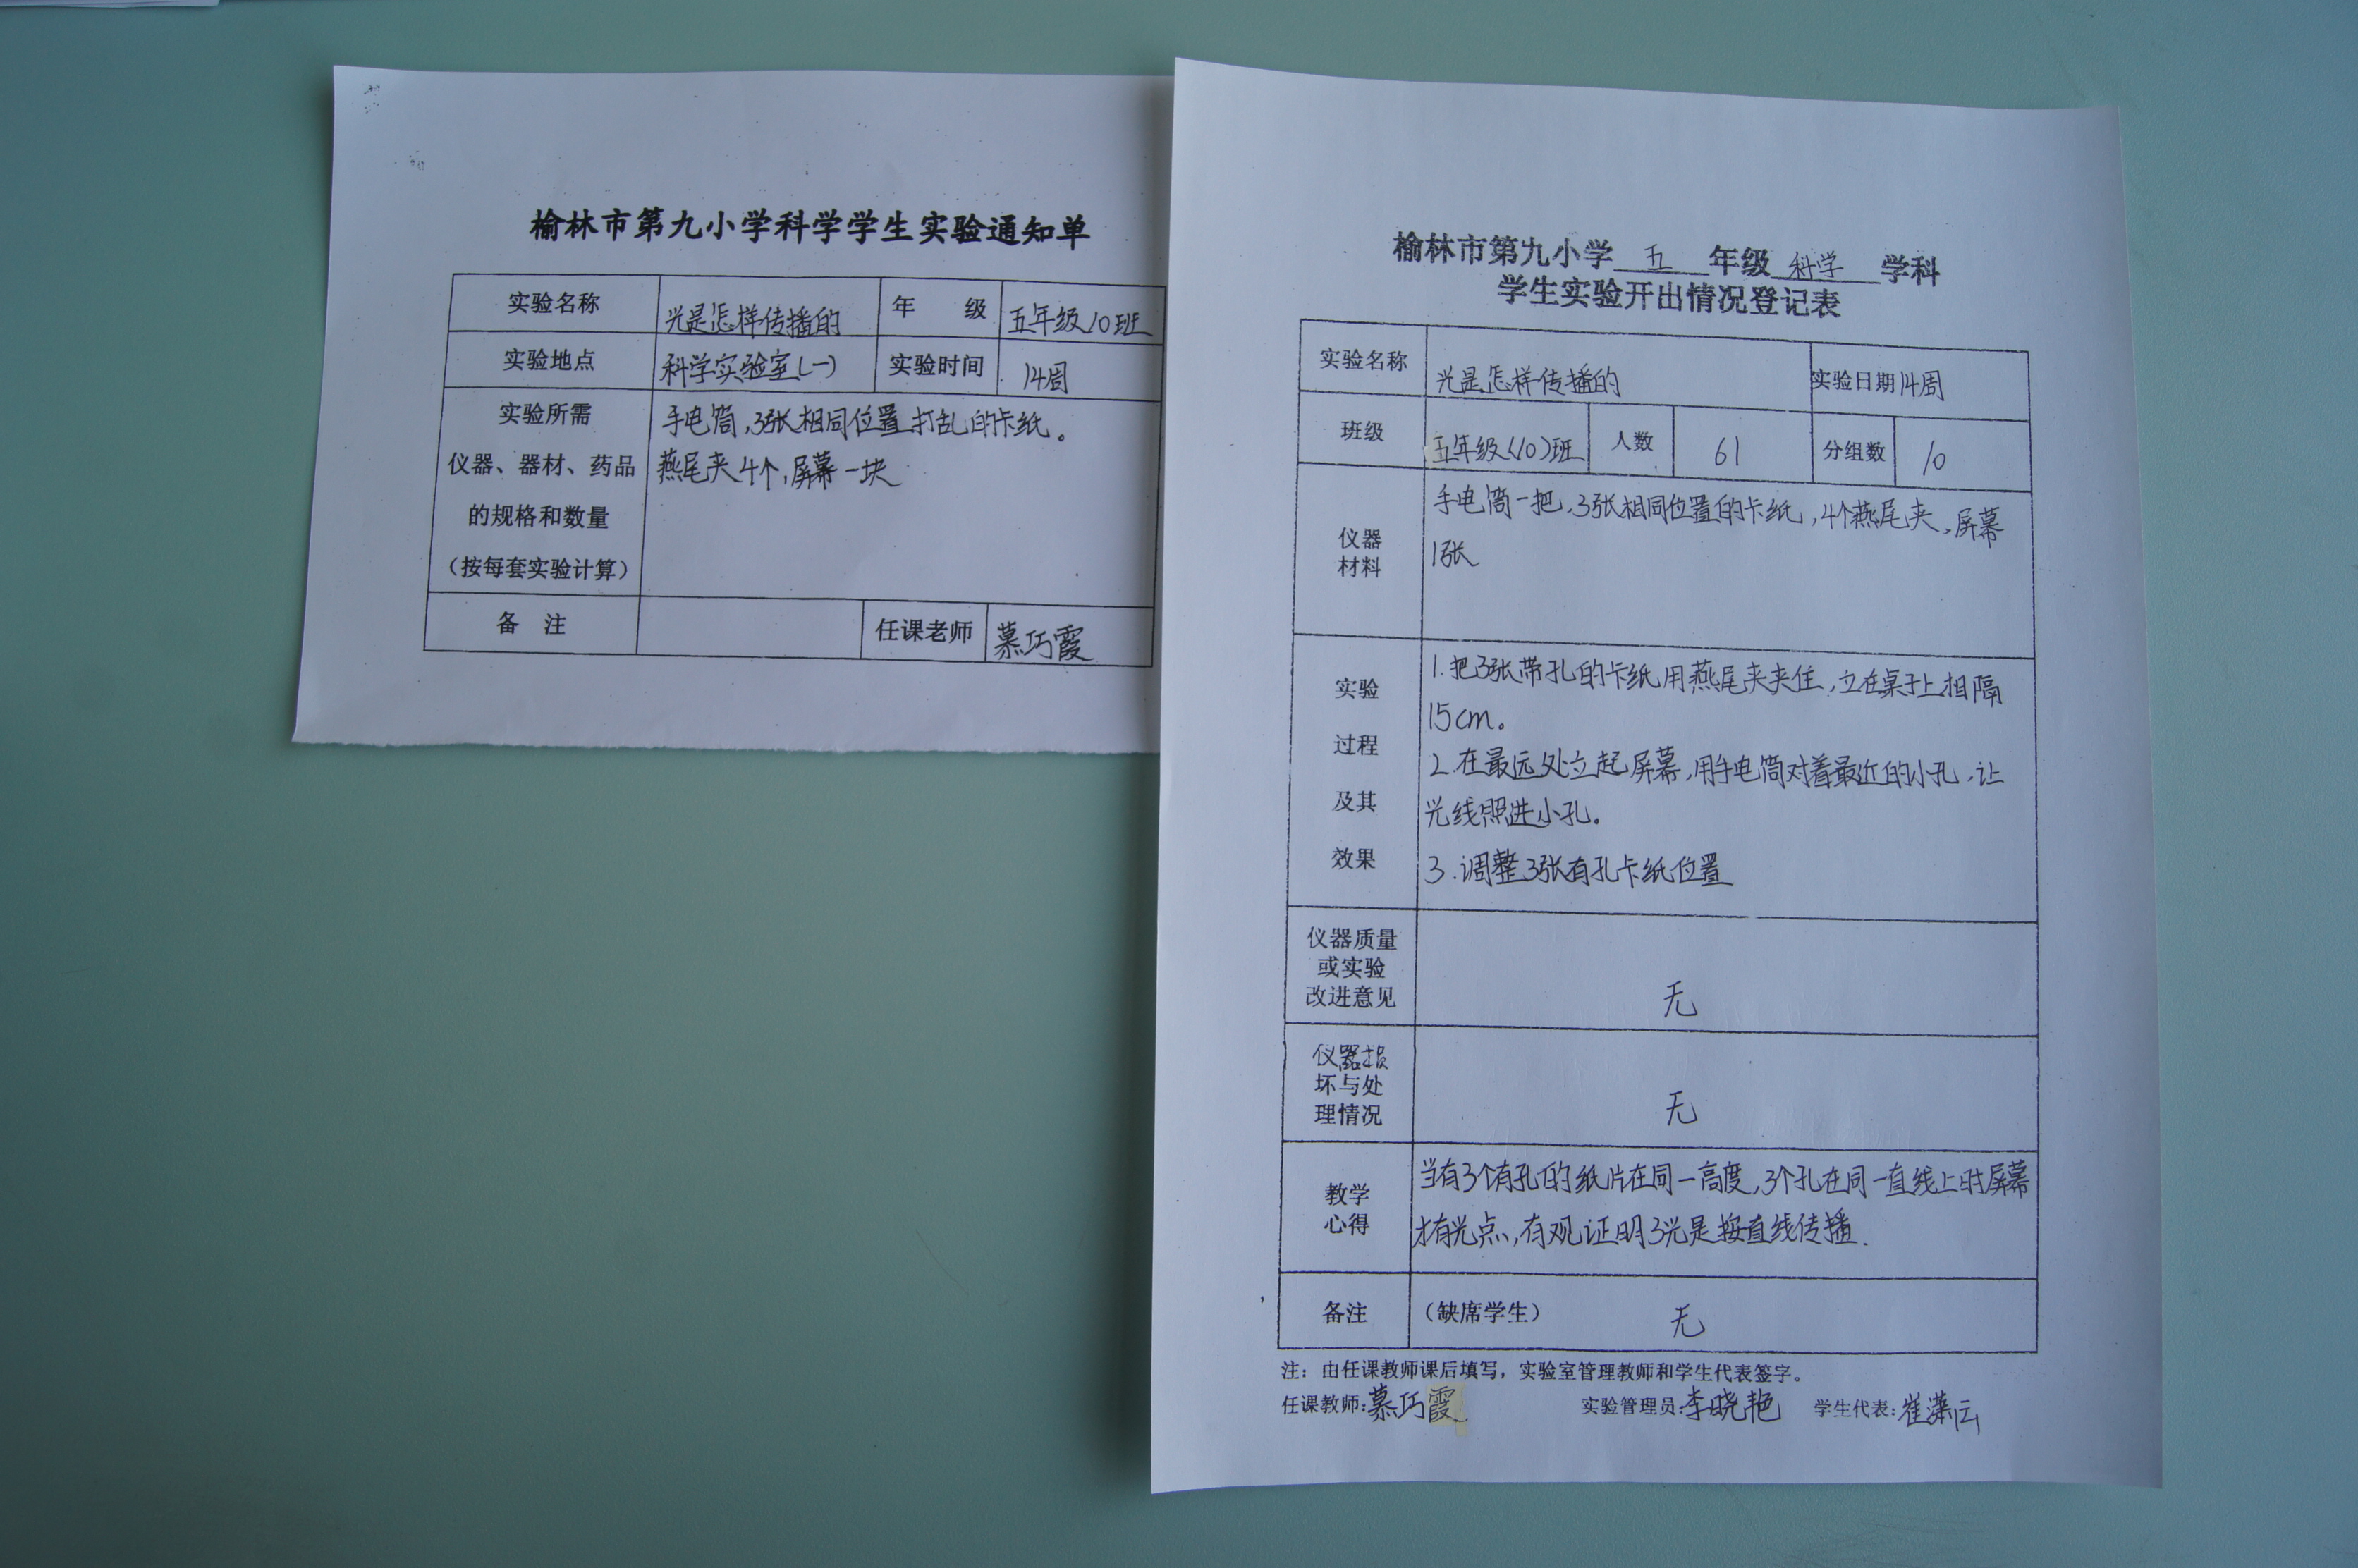 榆林市第九小学科学学生实验通知单
实验名称 光是怎样传播的 年 级 五年级10班
实验地点 科学实验室(一) 实验时间 14周
实验所需
仪器、器材、药品
的规格和数量
(按每套实验计算)
手电筒,3张相同位置打乱的卡纸。
燕尾夹4个,屏幕一块
备 注 任课老师 慕巧霞
榆林市第九小学 五 年级 科学 学科
学生实验开出情况登记表
实验名称 光是怎样传播的 实验日期 14周
班级 五年级(10)班 人数 61 分组数 10
仪器
材料
手电筒一把,3张相同位置的卡纸,4个燕尾夹,屏幕
1张
实验
过程
及其
效果
1.把3张带孔的卡纸用燕尾夹夹住,立在桌子上相隔
15cm。
2.在最远处立起屏幕,用手电筒对着最近的小孔,让
光线照进小孔。
3.调整3张有孔卡纸位置
仪器质量
或实验
改进意见
无
仪器损
坏与处
理情况
无
教学
心得
当有3个有孔的纸片在同一高度,3个孔在同一直线上时屏幕
才有光点,有观证明3光是按直线传播.
备注 (缺席学生) 无
注:由任课教师课后填写,实验室管理教师和学生代表签字。
任课教师:慕巧霞 实验管理员:李晓艳 学生代表:崔潇云